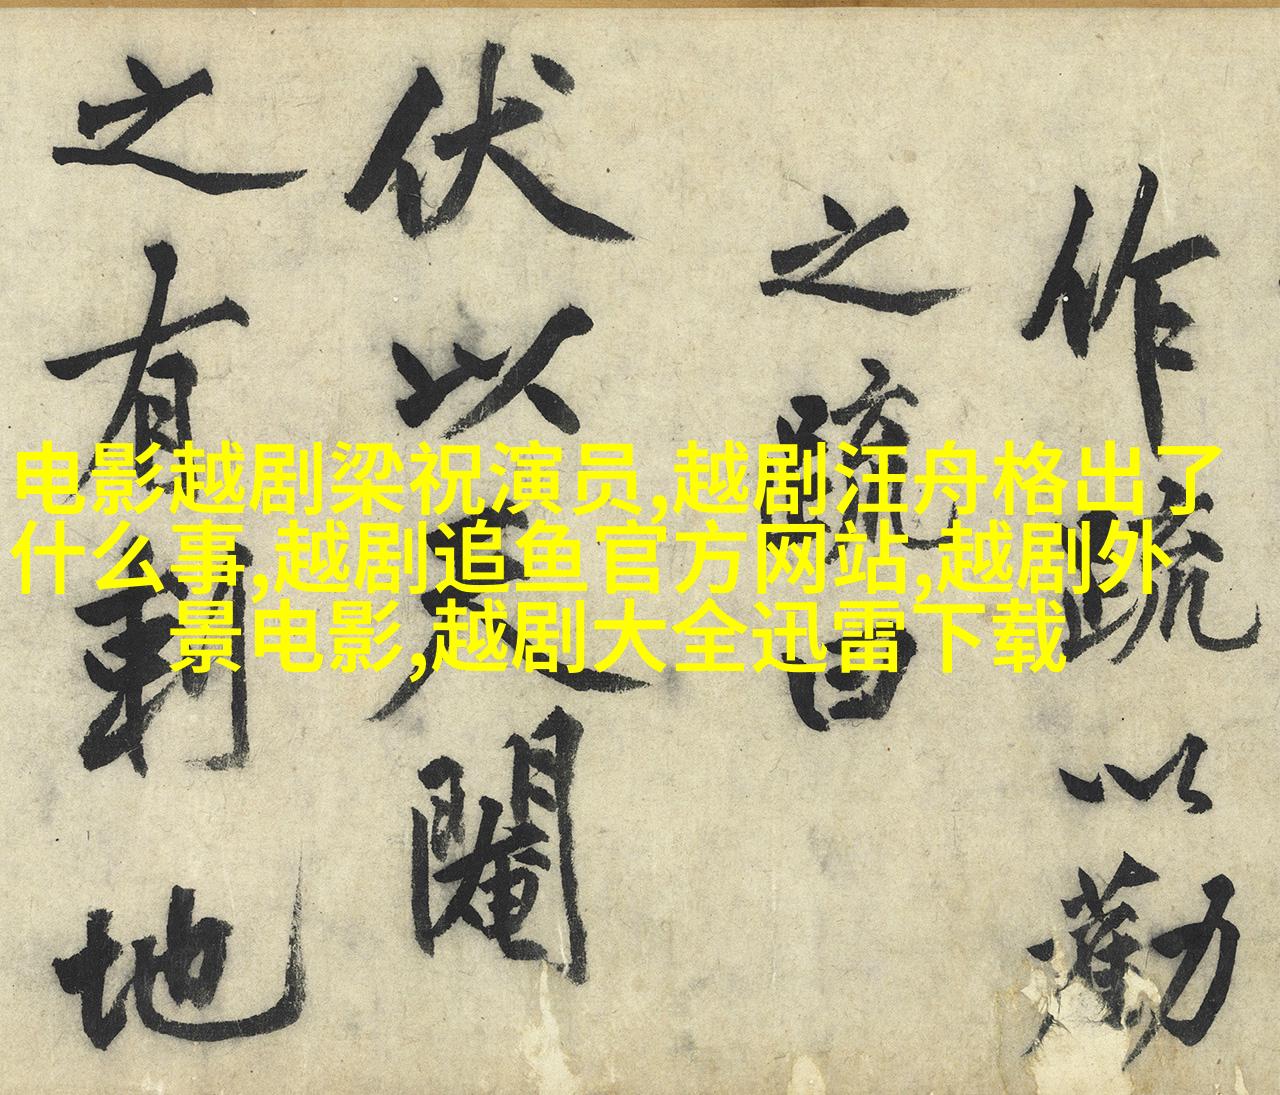 作疏以勸
之疏曰
伏以天
之有地
电影越剧梁祝演员,越剧汪舟格出了
什么事,越剧追鱼官方网站,越剧外
景电影,越剧大全迅雷下载